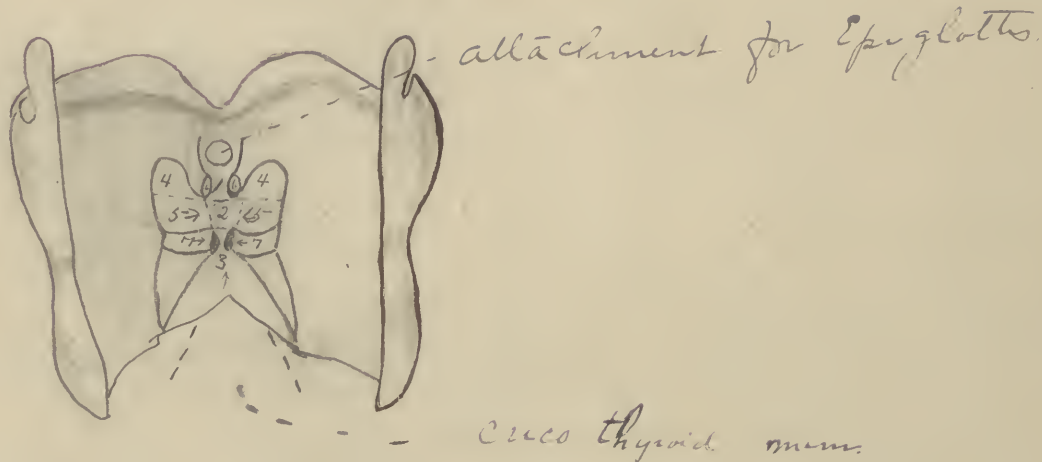 attachment for Epiglottis.
4 4
5 2 5
7 7
3
crico thyroid mem.